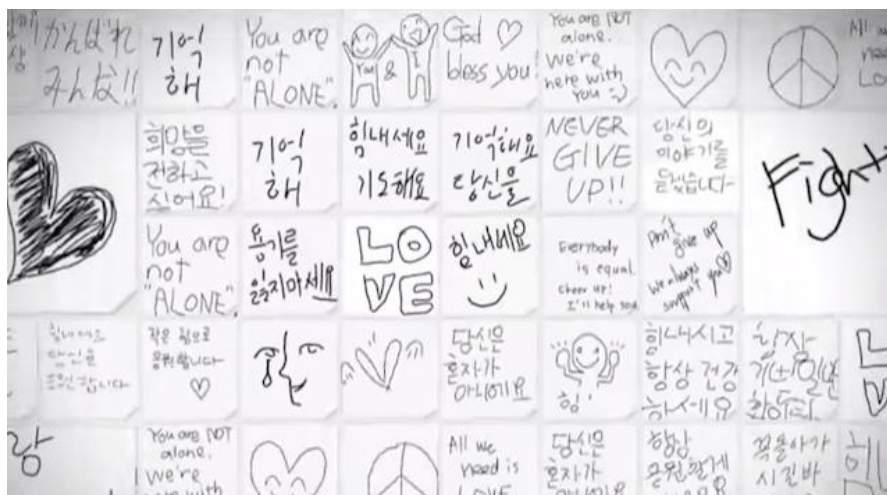 がんばれ
みんな!!
기억
해
You are
not
"ALONE".
You & I
God ♡
bless you!
You are NOT
alone.
We're
here with
you :-)
희망을
전하고
싶어요!
기억
해
힘내세요
기도해요
기억해요
당신을
NEVER
GIVE
UP!!
당신의
이야기를
듣겠습니다
Fight
You are
not
"ALONE".
용기를
잃지마세요
LO
VE
힘내세요
Everybody
is equal.
cheer up!
I'll help you
Don't
give up
We always
support you♡
힘내세요
당신을
응원합니다
작은 힘으로
응원합니다
♡
당신은
혼자가
아니에요
힘!
힘내시고
항상 건강
하세요
L
V
랑
You are NOT
alone.
We're
here with
All we
need is
LOVE
당신은
혼자가
아니에요
항상